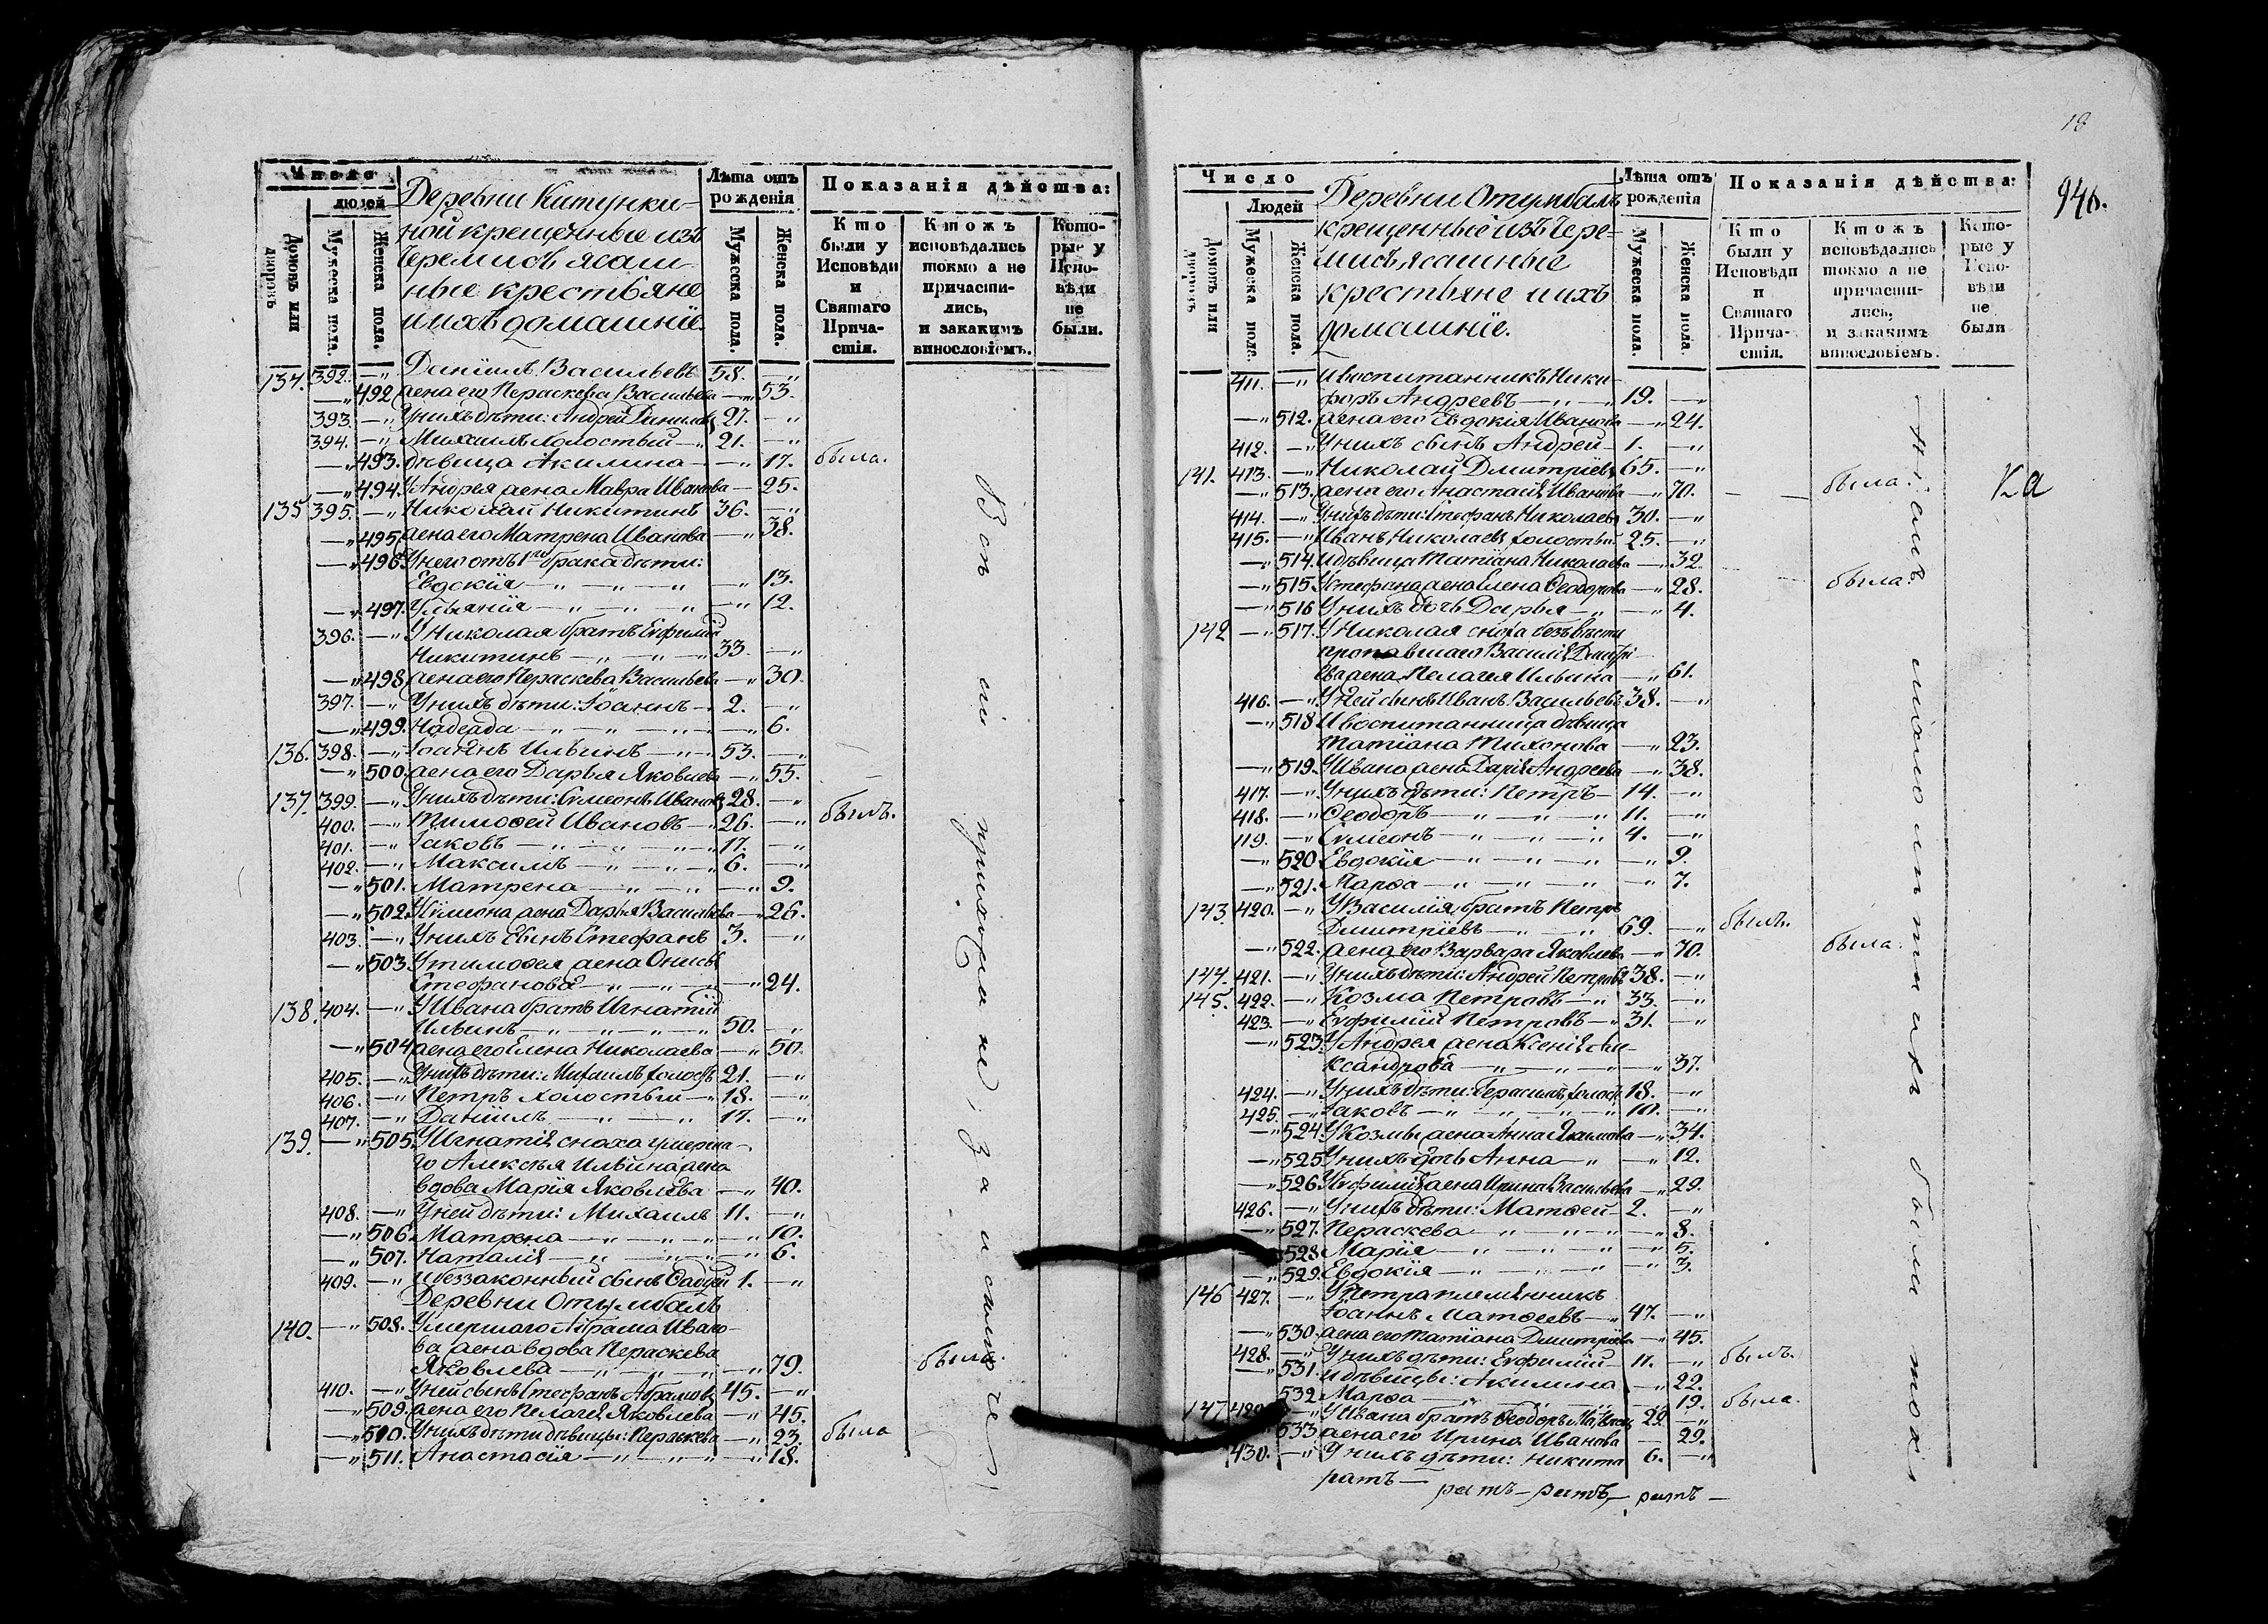 Число
людей
Домовъ или дворовъ
Мужеска пола.
Женска пола.
Деревни Китунки-
ной крещенные изъ
Черемисъ ясаш-
ные крестьяне
и ихъ домашніе.
Лѣта отъ рожденія
Мужеска пола.
Женска пола.
Показанія дѣйства:
Кто были у Исповѣди и Святаго Прича-стія.
Ктожъ исповѣдались токмо а не причасти-лись, и закакимъ винословіемъ.
Кото-рые у Испо-вѣди не были.
137. 392. —„ Даніилъ Васильевъ 58. —„
—„ 492 жена его Пераскева Васильева —„ 53.
393. —„ У нихъ дѣти: Андрей Даниловъ 27. —„
394. —„ Михаилъ холостый —„ 21. —„
—„ 493. дѣвица Акилина —„ 17. была.
—„ 494. У Андрея жена Мавра Иванова — 25.
135 395. —„ Николай Никитинъ 36. —„
—„ 495. жена его Матрена Иванова —„ 38.
—„ 496. У него отъ 1го брака дѣти:
Евдокія —„ —„ —„ —„ 13.
—„ 497. Ульянія —„ —„ —„ —„ 12.
396. —„ У Николая братъ Евфимій
Никитинъ —„ —„ —„ 33. —„
—„ 498. жена его Пераскева Васильева —„ 30.
397. —„ У нихъ дѣти: Іоаннъ —„ 2. —„
—„ 499. Надежда —„ —„ —„ —„ 6.
136. 398. —„ Іоаннъ Ильинъ —„ 53. —„
—„ 500. жена его Дарья Яковлева —„ 55.
137. 399. —„ У нихъ дѣти: Сѵмеонъ Ивановъ 28. —„
400. —„ Тимофей Ивановъ —„ 26. —„ былъ.
401. —„ Іаковъ —„ —„ —„ 17. —„
402. —„ Максимъ —„ —„ —„ 6. —„
—„ 501. Матрена —„ —„ —„ 9.
—„ 502. У Сѵмеона жена Дарья Васильева —„ 26.
403. —„ У нихъ сынъ Стефанъ 3. —„
—„ 503. У Тимофея жена Онисья
Стефанова —„ —„ —„ 24.
138. 404. —„ У Ивана братъ Игнатій
Ильинъ —„ —„ —„ 50. —„
—„ 504 жена его Елена Николаева —„ 50.
405. —„ У нихъ дѣти: Михаилъ холостъ 21. —„
406. —„ Петръ холостый —„ 18. —„
407. —„ Даніилъ —„ —„ 17. —„
139. —„ 505. У Игнатія сноха умерша-
го Алексѣя Ильина жена
вдова Марія Яковлева —„ 40.
408. —„ У ней дѣти: Михаилъ 11. —„
—„ 506. Матрена —„ —„ —„ 10.
—„ 507. Наталія —„ —„ —„ 6.
409. —„ и беззаконный сынъ Фаддей 1. —„
Деревни Отумбалъ
140. —„ 508. Умершаго Абрама Ивано-
ва жена вдова Пераскева
Яковлева —„ —„ —„ 79. была.
410. —„ У ней сынъ Стефанъ Абрамовъ 45. —„
—„ 509. жена его Пелагея Яковлева —„ 45.
—„ 510. У нихъ дѣти дѣвицы: Пераскева —„ 23. была
—„ 511. Анастасія —„ —„ —„ 18.
Вси сіи прихожане, за
18
946.
Число
Людей
Домовъ или дворовъ
Мужеска пола.
Женска пола.
Деревни Отумбалъ
крещенные изъ Чере-
мисъ ясашные
крестьяне и ихъ
домашніе.
Лѣта отъ рожденія
Мужеска пола.
Женска пола.
Показанія дѣйства:
Кто были у Исповѣди и Святаго Прича-стія.
Ктожъ исповѣдались токмо а не причасти-лись, и закакимъ винословіемъ.
Кото-рые у Испо-вѣди не были
411. —„ И воспитанникъ Ники-
форъ Андреевъ —„ 19. —„
—„ 512. жена его Евдокія Иванова —„ 24.
412. —„ У нихъ сынъ Андрей — 1. —„
141. 413. —„ Николай Дмитріевъ 65. —„
—„ 513. жена его Анастасія Иванова —„ 70. была.
414. —„ У нихъ дѣти: Стефанъ Николаевъ 30. —„
415. —„ Иванъ Николаевъ холостый 25. —„
—„ 514. и дѣвица Татіана Николаева —„ 32.
—„ 515 У Стефана жена Елена Феодорова —„ 28. была.
—„ 516 У нихъ дочь Дарья —„ —„ 4.
142 —„ 517. У Николая сноха безъ вѣсти
пропавшаго Василія Дмитрі-
ева жена Пелагея Ильина —„ 61.
416. —„ У ней сынъ Иванъ Васильевъ 38. —„
—„ 518. И воспитанница дѣвица
Татіана Тихонова —„ 23.
—„ 519. У Ивана жена Дарія Андреева —„ 38.
417. —„ У нихъ дѣти: Петръ — 14. —„
418. —„ Феодоръ —„ —„ —„ 11. —„
119. —„ Сѵмеонъ —„ —„ —„ 4. —„
—„ 520. Евдокія —„ —„ —„ —„ 9.
—„ 521. Марфа —„ —„ —„ —„ 7.
143. 420. —„ У Василія братъ Петръ
Дмитріевъ —„ —„ 69. —„ былъ.
—„ 522. жена его Варвара Яковлева —„ 70. была.
144. 421. —„ У нихъ дѣти: Андрей Петровъ 38. —„
145. 422. —„ Козма Петровъ —„ 33. —„
423. —„ Евфимій Петровъ —„ 31. —„
—„ 523. У Андрея жена Ксенія Але-
ксандрова —„ —„ —„ 37.
424. —„ У нихъ дѣти: Герасимъ холостъ 18. —„
425. —„ Іаковъ —„ —„ —„ —„ 10. —„
—„ 524. У Козмы жена Анна Якимова —„ 34.
—„ 525. У нихъ дочь Анна —„ —„ 12.
—„ 526. У Евфимія жена Ирина Васильева —„ 29.
426. —„ У нихъ дѣти: Матфей — 2. —„
—„ 527. Пераскева —„ —„ —„ —„ 8.
528. Марія —„ —„ —„ —„ 5.
—„ 529. Евдокія —„ —„ —„ —„ 3.
146 427. —„ У Петра племянникъ
Іоаннъ Матфеевъ —„ 47. —„
—„ 530. жена его Татіана Дмитріева —„ 45.
428. —„ У нихъ дѣти: Евфимій — 11. —„ былъ.
—„ 531. и дѣвицы: Акилина —„ 22.
532. Марфа —„ 19. была.
147 429. —„ У Ивана братъ Феодоръ 29. —„
533 жена его Ирина Иванова — 29.
430. —„ У нихъ дѣти: Никита 6. —„
ратъ — ратъ — ратъ — ратъ —
были токмо
ка